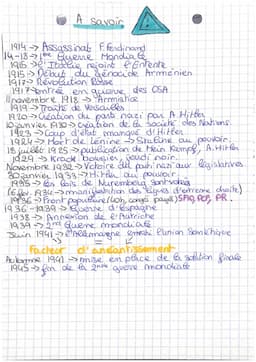 A savoir
1914 → Assassinat F. Ferdinand
14-18 → 1ère Guerre Mondiale
1915 → L'Italie rejoint l'Entente
1915 → Début du génocide Arménien
1917 → Révolution Russe
1917 → entrée en guerre des USA
11 novembre 1918 → Armistice
1919 → Traité de Versailles
1920 → Création du parti nazi par A. Hitler
10 janvier 1920 → Création de la Société des Nations
1923 → Coup d'état manqué d'Hitler
1924 → Mort de Lénine → Staline au pouvoir.
18 juillet 1925 → publication de Mein Kampf, A. Hitler
1929 → Krack boursier, jeudi noir.
Novembre 1932 → Victoire du parti nazi aux législatives
30 janvier 1933 → Hitler au pouvoir
1935 → les lois de Nuremberg
6 fév. 1934 → manifestation des ligues (extrême droite)
1936 → Front populaire (40h, congés payés) SFIO, PCF, PR.
1936-1939 → Guerre d'Espagne
1938 → Annexion de l'Autriche
1939 → 2nde Guerre mondiale
Juin 1941 → l'Allemagne envahie l'union Soviétique
=
Facteur d'anéantissement
Automne 1941 → mise en place de la solution finale
1945 → fin de la 2nde guerre mondiale